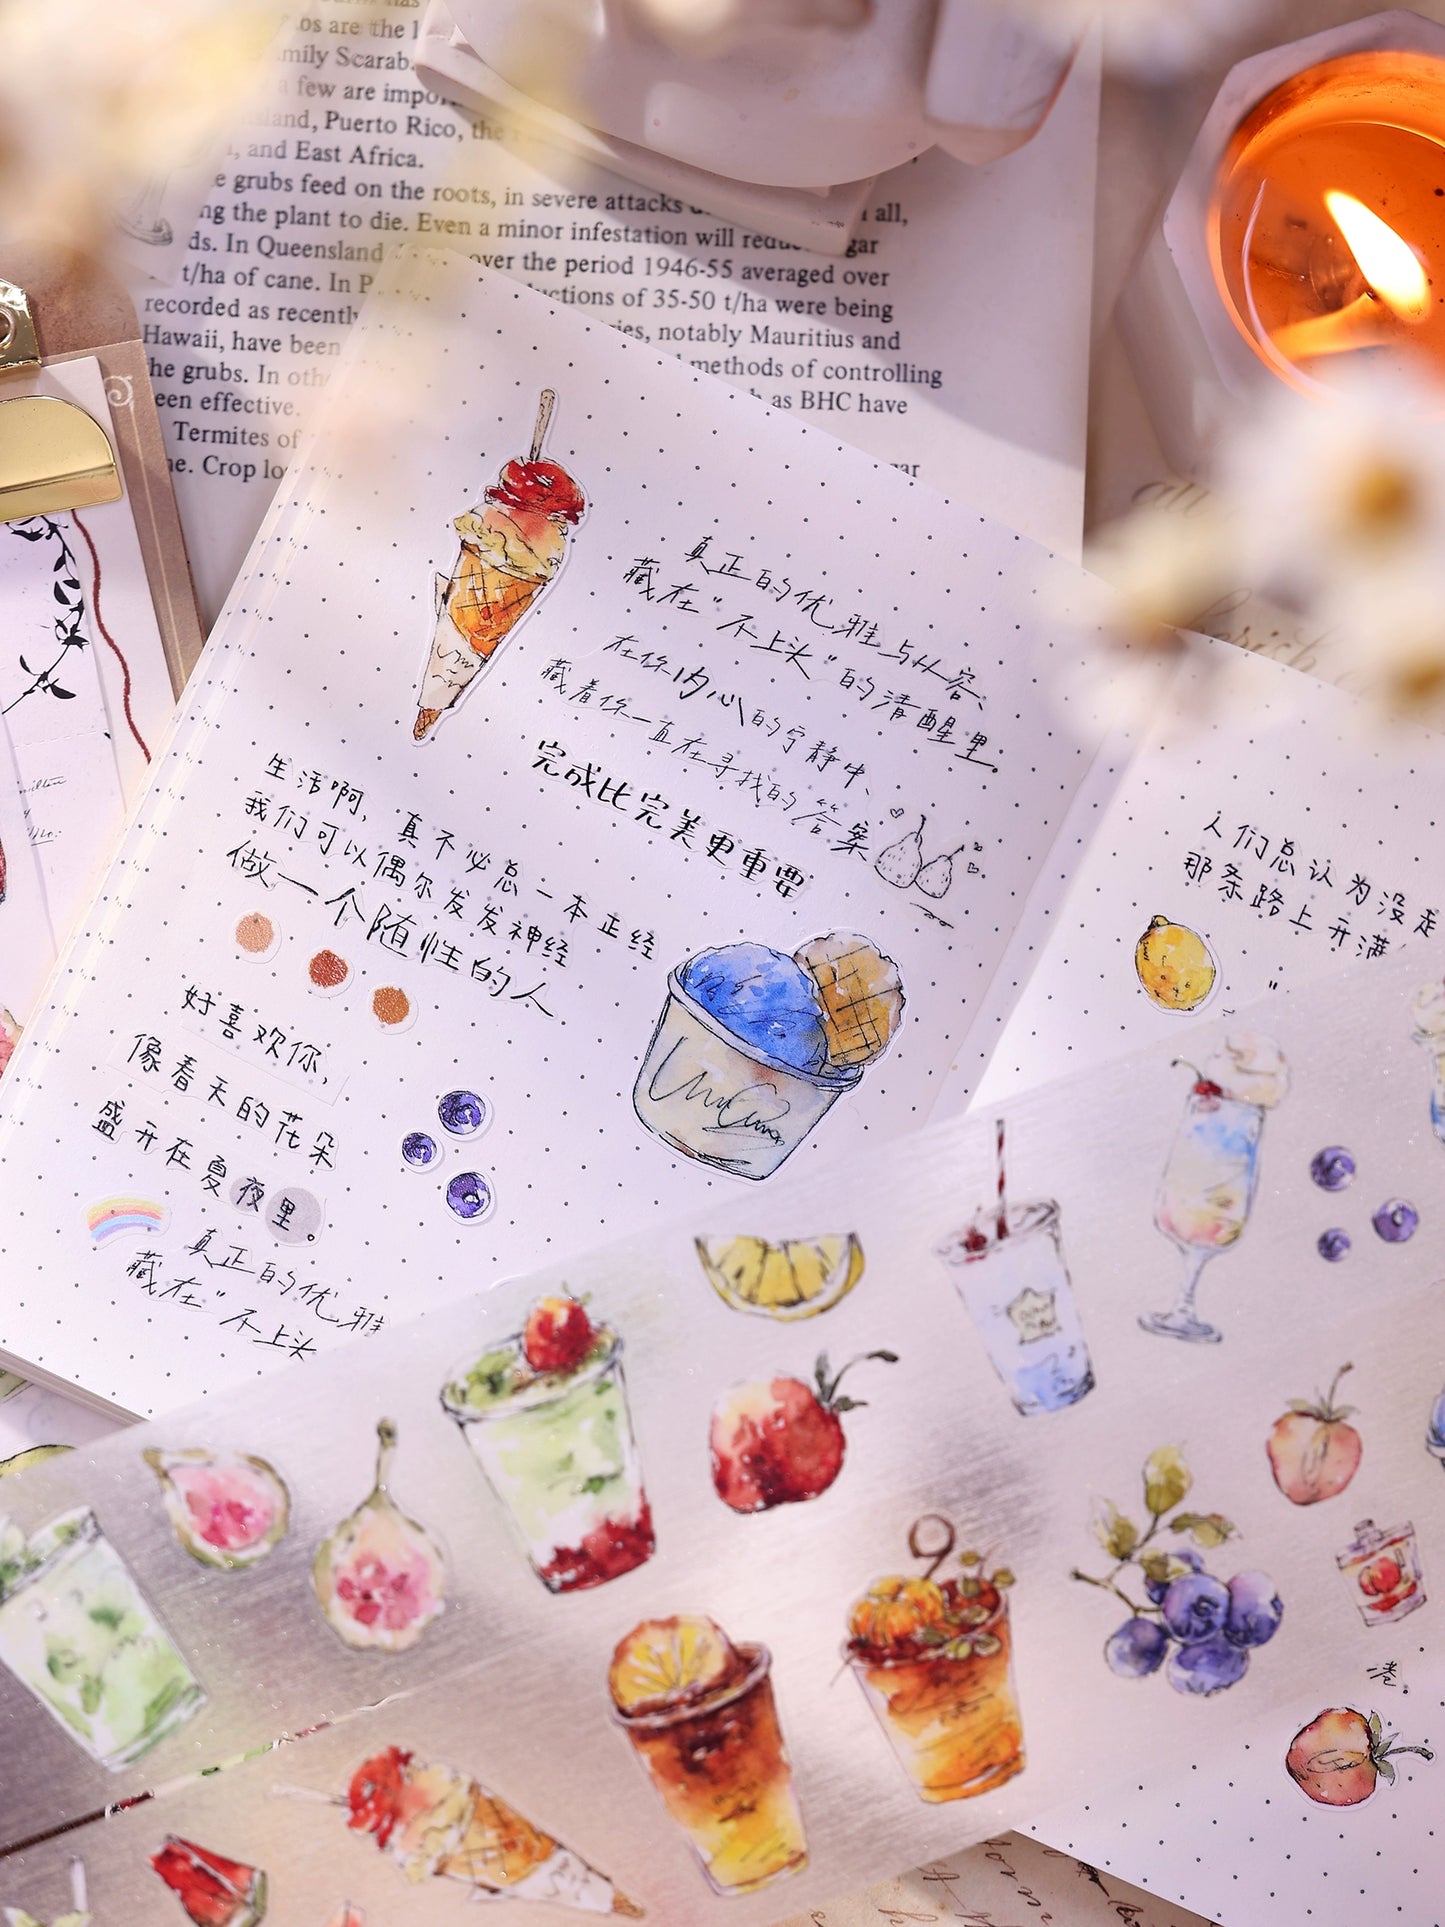 os are the
mily Scarab.
a few are
land, Puerto Rico, the
, and East Africa.
grubs feed on the roots, in severe attacks
all,
ng the plant to die. Even a minor infestation will
gar
ds. In Queensland
over the period 1946-55 averaged over
t/ha of cane. In
uctions of 35-50 t/ha were being
recorded as recently
ies, notably Mauritius and
Hawaii, have been
methods of controlling
he grubs. In oth
as BHC have
een effective.
Termites of
ne. Crop lo
gar
真正的优雅与从容、
藏在"不上头"的清醒里。
在你内心的宁静中、
藏着你一直在寻找的答案
完成比完美更重要
生活啊，真不必总一本正经
我们可以偶尔发发神经
做一个随性的人
好喜欢你，
像春天的花朵
盛开在夏夜里。
真正的优雅
藏在"不上头
人们总认为没走
那条路上开满